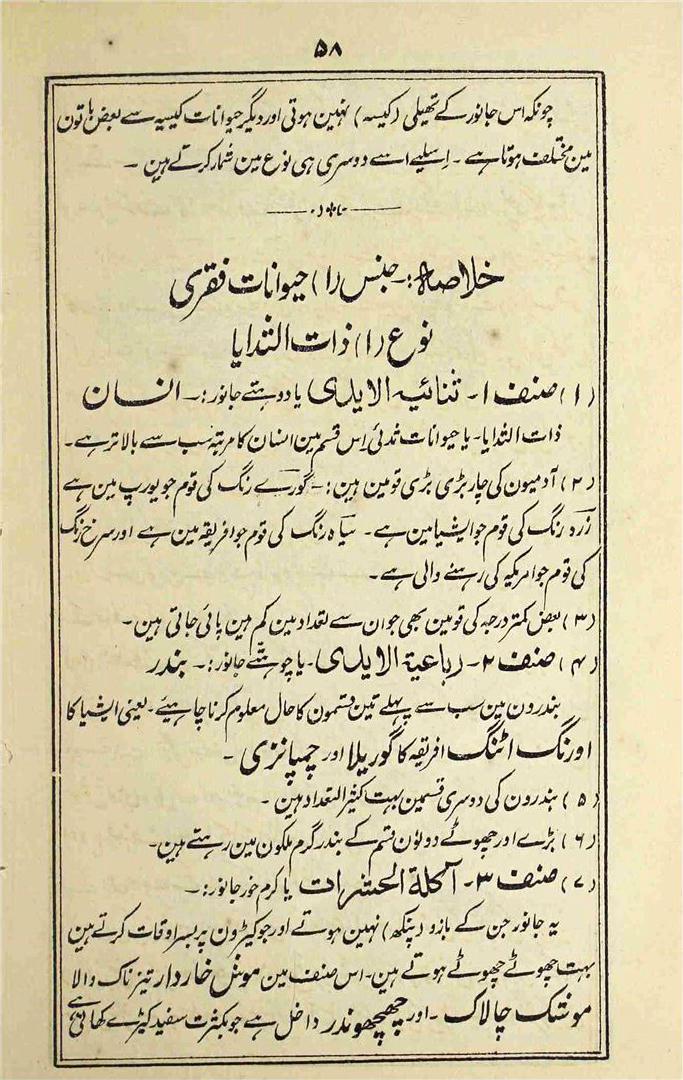 ۵۸
چونکہ اس جانور کے تھیلی (کیسہ) نہین ہوتی اور دیگر حیوانات کیسیہ سے بعض باتون
مین مختلف ہوتا ہے ۔ اِسلیے اسے دوسری ہی نوع مین شمار کرتے ہین ۔
خلاصہ:۔ جنس (۱) حیوانات فقری
نوع (۱) ذات الثدایا
(۱) صنف ۱۔ ثنائیہ الایدی یا دوہتے جانور:۔ انسان
ذات الثدایا۔ یا حیوانات ثدئی اِس قسم مین انسان کا مرتبہ سب سے بالاتر ہے۔
(۲) آدمیون کی چار بڑی بڑی قومین ہین:۔ گورے رنگ کی قوم جو یورپ مین ہے
زرد رنگ کی قوم جو ایشیا مین ہے۔ سیاہ رنگ کی قوم جو افریقہ مین ہے اور سرخ رنگ
کی قوم جو امریکہ کی رہنے والی ہے۔
(۳) بعض کمتر درجہ کی قومین بھی جو ان سے تعداد مین کم ہین پائی جاتی ہین۔
(۴) صنف ۲۔ رباعیۃ الایدی۔ یا چوہتے جانور:۔ بندر
بندرون مین سب سے پہلے تین قسمون کا حال معلوم کرنا چاہیئے۔ یعنی ایشیا کا
اورنگ اٹنگ افریقہ کا گوریلا اور چمپانزی ۔
(۵) بندرون کی دوسری قسمین بہت کثیر التعداد ہین ۔
(۶) بڑے اور چھوٹے دونون قسم کے بندر گرم ملکون مین رہتے ہین۔
(۷) صنف ۳۔ آکلۃ الحشرات یا کرم خور جانور:۔
یہ جانور جن کے بازو (پنکھ) نہین ہوتے اور جو کیڑون پر بسر اوقات کرتے ہین
بہت چھوٹے چھوٹے ہوتے ہین۔ اس صنف مین موش خاردار تیز ناک والا
مونشک چالاک ۔ اور چھچھوندر داخل ہے جو بکثرت سفید کیڑے کھاتی ہے